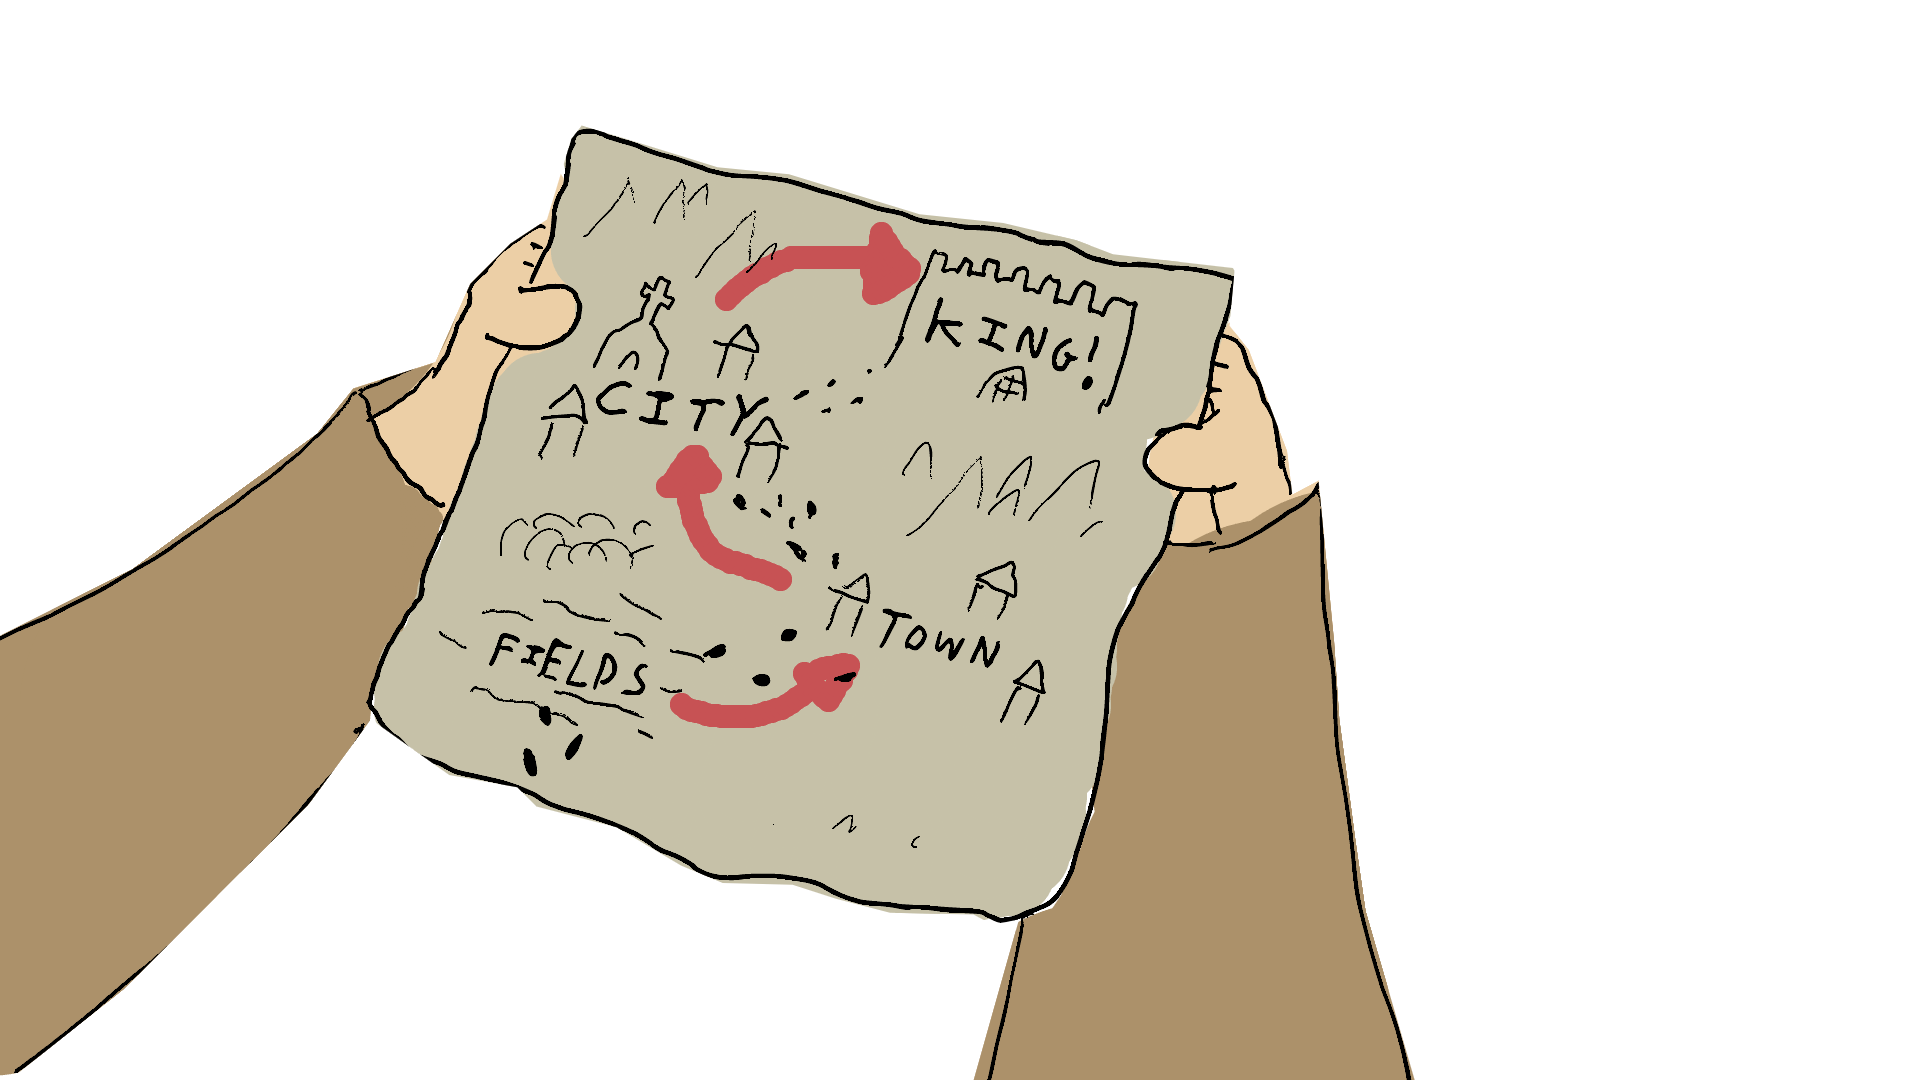 KING!
CITY
TOWN
FIELDS